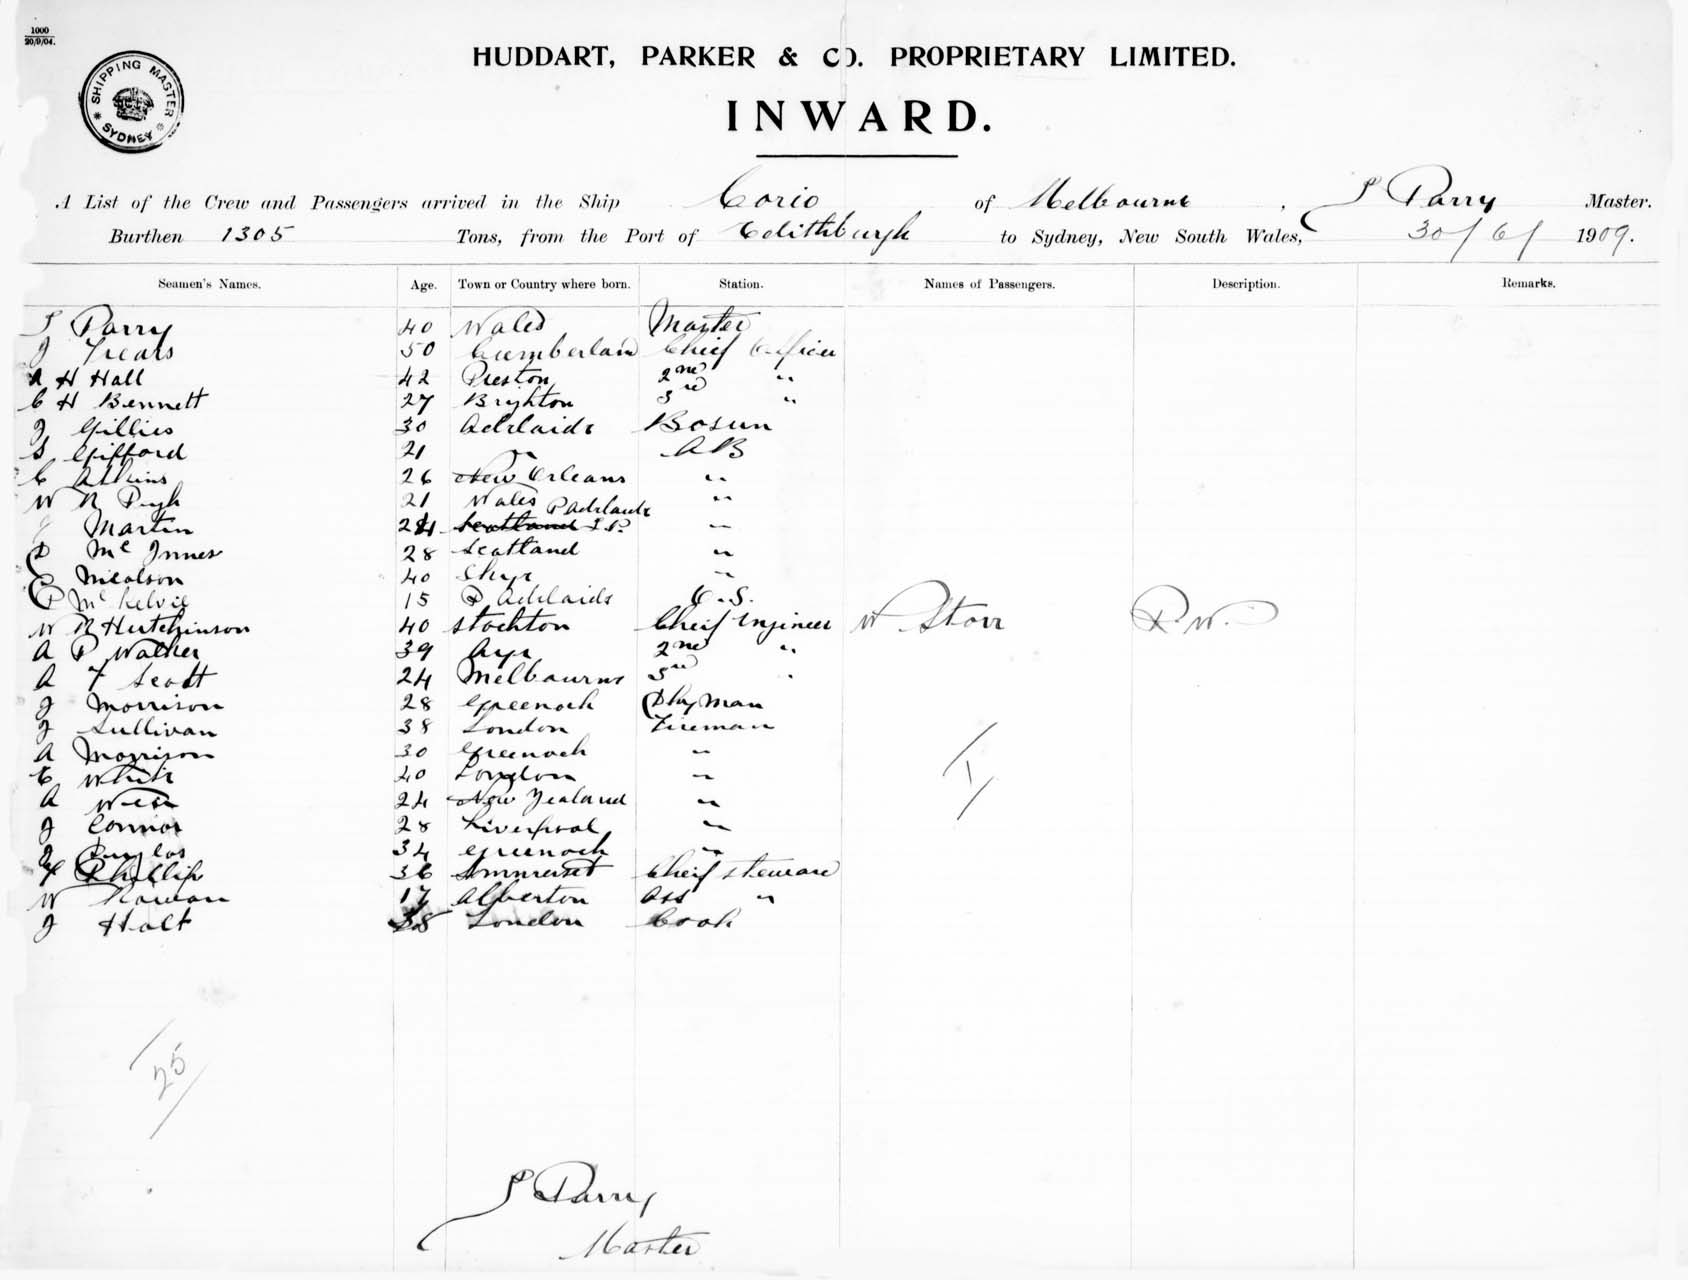 1000
20/9/04.
SHIPPING MASTER
SYDNEY
HUDDART, PARKER & CO. PROPRIETARY LIMITED.
INWARD.
A List of the Crew and Passengers arrived in the Ship Corio of Melbourne, Parry Master.
Burthen 1305 Tons, from the Port of Edithburgh to Sydney, New South Wales, 30/6/1909.
Seamen's Names. Age. Town or Country where born. Station. Names of Passengers. Description. Remarks.
Parry 40 Wales Master
J 50 Cumberland Chief Officer
A H Hall 42 Preston 2nd "
C H Bennett 27 Brighton 3rd "
J Gillies 30 Adelaide Bosun
S Gifford 21 " AB
C Atkins 26 New Orleans "
W R Pugh 21 Wales "
P Adelaide
Martin 24 Scotland "
D McInnes 28 Scotland "
Nicolson 40 Skye "
P McKelvie 15 P Adelaide O.S.
W R Hutchinson 40 Stockton Chief Engineer W Storr
A P Walker 39 Ayr 2nd "
A F Scott 24 Melbourne 3rd "
J Morrison 28 Greenock Dky Man
J Sullivan 38 London Fireman
A Morrison 30 Greenock "
C White 40 London "
A West 24 New Zealand "
J Connor 28 Liverpool "
J Douglas 34 Greenock "
Phillip 36 Sommerset Chief Steward
W Rowan 17 Alberton Ass "
J Holt 38 London Cook
1
25
Parry
Master